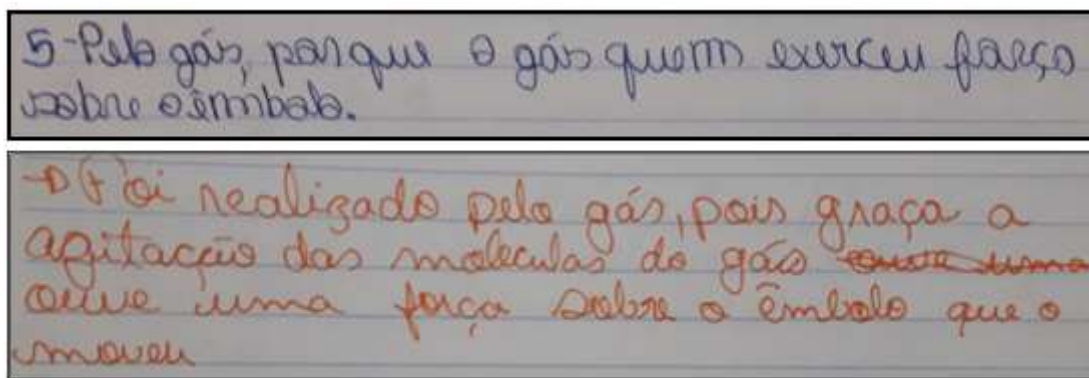 5-Pelo gás, porque o gás quem exerceu força
sobre o êmbolo.
→ Foi realizado pelo gás, pois graça a
agitacção das moleculas do gás ouve uma
ouve uma força sobre o êmbolo que o
moveu